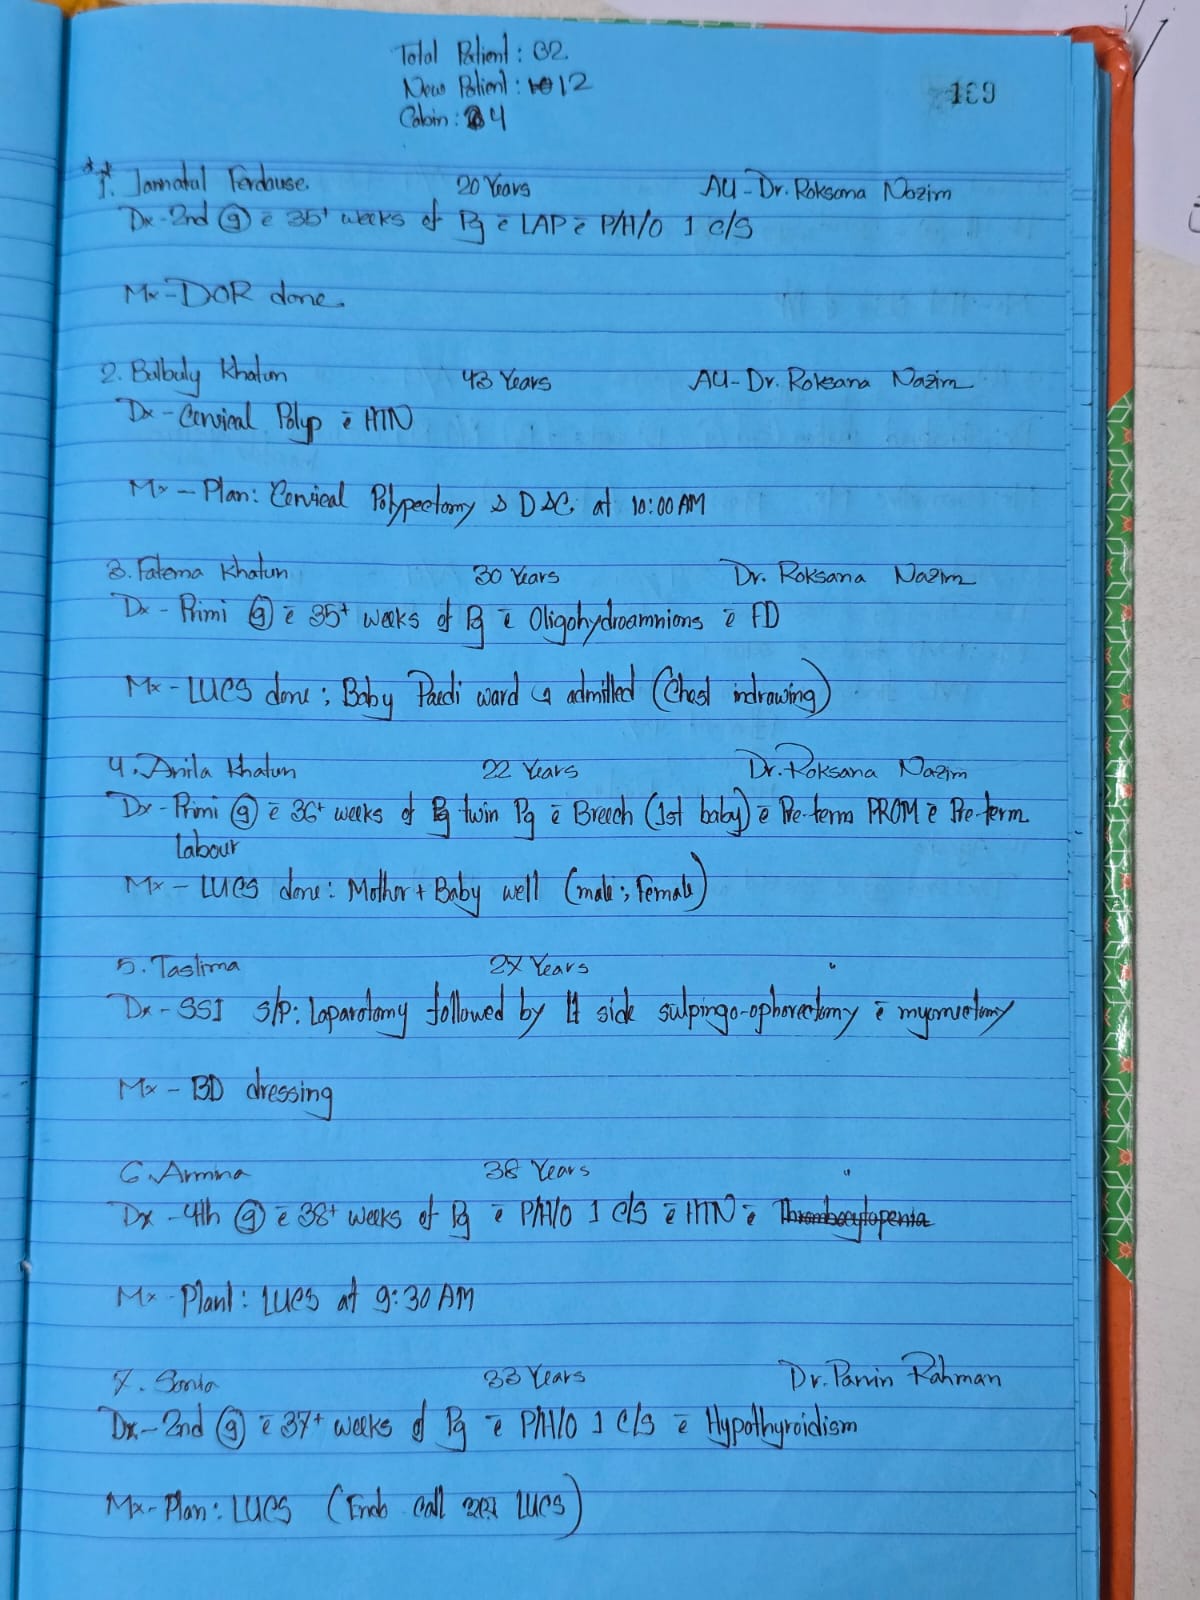 Total Patient : 32
New Patient : 12
Cabin : 4
169
** 1. Jannatul Ferdause. 20 Years AU - Dr. Roksana Nazim
Dx - 2nd (g) c̄ 35+ weeks of Pg c̄ LAP c̄ P/H/O 1 C/S
Mx - DOR done.
2. Bulbuly Khatun 43 Years AU - Dr. Roksana Nazim
Dx - Cervical Polyp c̄ HTN
Mx - Plan: Cervical Polypectomy & D&C at 10:00 AM
3. Fatema Khatun 30 Years Dr. Roksana Nazim
Dx - Primi (g) c̄ 35+ weeks of Pg c̄ Oligohydroamnions c̄ FD
Mx - LUCS done ; Baby Paedi ward admitted (Chest indrawing)
4. Anila Khatun 22 Years Dr. Roksana Nazim
Dx - Primi (g) c̄ 36+ weeks of twin Pg c̄ Breech (1st baby) c̄ Pre-term PROM c̄ Pre-term
labour
Mx - LUCS done : Mother + Baby well (male ; Female)
5. Taslima 27 Years "
Dx - SSI S/P: Laparotomy followed by lt side sulpingo-ophorectomy c̄ myomectomy
Mx - BD dressing
6. Armina 38 Years "
Dx - 4th (g) c̄ 38+ weeks of Pg c̄ P/H/O 1 C/S c̄ HTN c̄ Thrombocytopenia
Mx - Plant : LUCS at 9:30 AM
7. Sonia 33 Years Dr. Parvin Rahman
Dx - 2nd (g) c̄ 37+ weeks of Pg c̄ P/H/O 1 C/S c̄ Hypothyroidism
Mx - Plan : LUCS (Endo call LUCS)